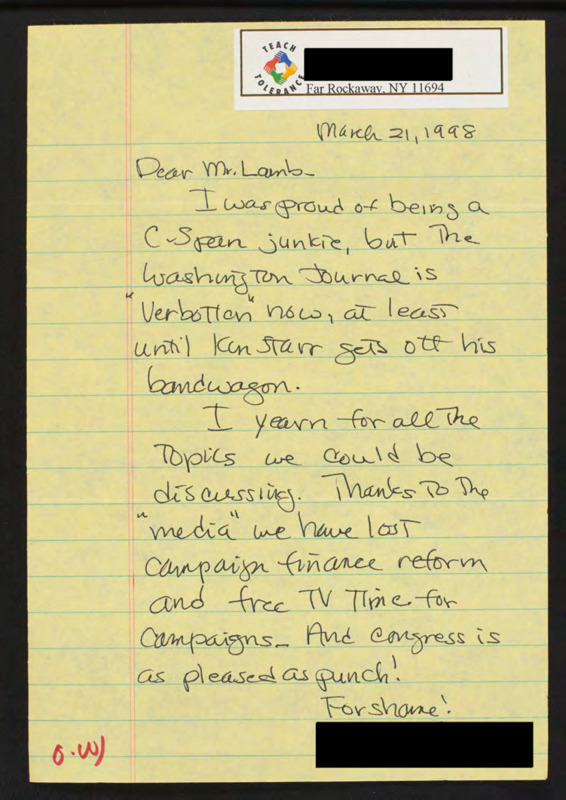 TEACH
TOLERANCE
Far Rockaway, NY 11694
March 21, 1998
Dear Mr. Lamb-
I was proud of being a
C-Span junkie, but the
Washington Journal is
"Verbotten" now, at least
until Ken Starr gets off his
bandwagon.
I yearn for all the
Topics we could be
discussing. Thanks to the
"media" we have lost
campaign finance reform
and free TV Time for
campaigns- And Congress is
as pleased as punch!
For shame!